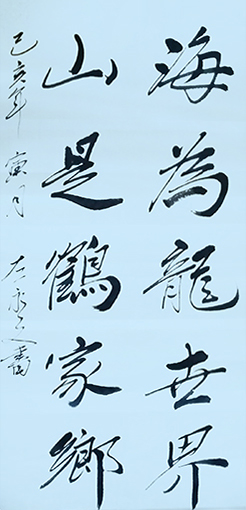 海為龍世界
山是鶴家鄉
己亥年 寅月 左永仁書